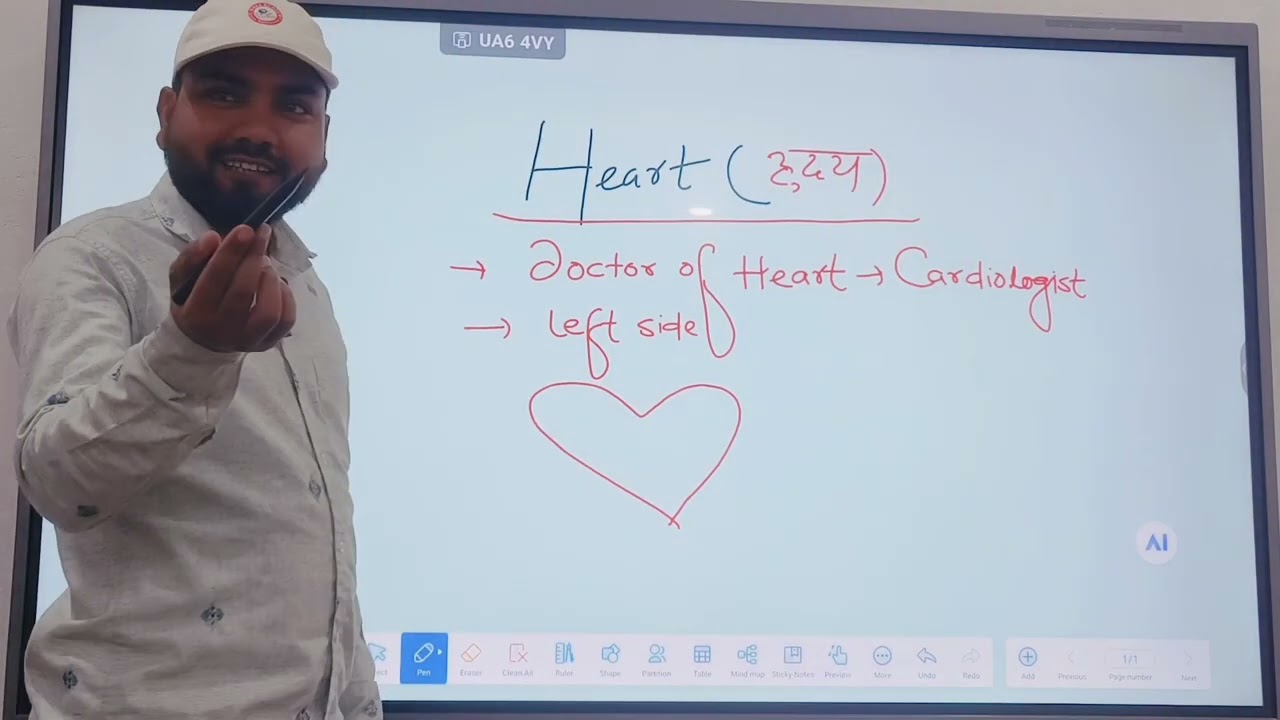 UA6 4VY
Heart (हृदय)
→ Doctor of Heart → Cardiologist
→ left side
AI
Pen Eraser Clean All Ruler Shape Partition Table Mind map Sticky Notes Preview More Undo Redo Add Previous 1/1 Page number Next